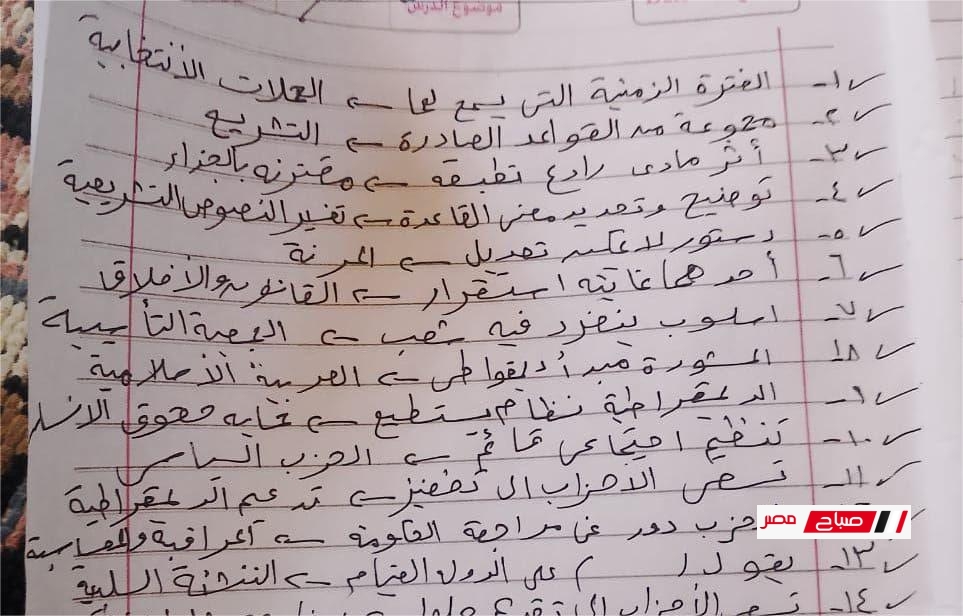 موضوع الدرس
١- الفترة الزمنية التى يسمح لها ← الحملات الأنتخابية
٢- مجموعة من القواعد الصادرة ← التشريع
٣- أثر مادى رادع تطبيقة ← مقترنه بالجزاء
٤- توضيح وتحديد معنى القاعدة ← تفسير النصوص التشريعية
٥- دستور لا يمكن تعديل ← المرنة
٦- أحدهما غايته استقرار ← القانون والأخلاق
٧- اسلوب ينفرد فيه شعب ← الجمعية التأسيسية
٨- المشورة مبدأ ديمقراطى ← العربية الأسلامية
٩- الديمقراطية نظام يستطيع ← حمايه حقوق الانسان
١٠- تنظيم اجتماعى قائم ← الحزب السياسى
١١- تسعى الأحزاب الى تحفيز ← تدعيم الديمقراطية
حزب دور فى مراجعة الحكومة ← المراقبة والمحاسبة
١٣- يقع ل ( ) على الدول القيام ← التنشئة السلبية
١٤- تسعى الأحزاب الى تقديم حلول
صباح مصر